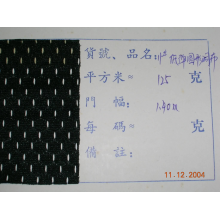 貨號、品名
平方米= 125 克
門 幅: 1.40m
每 碼= 克
備 註:
11.12.2004